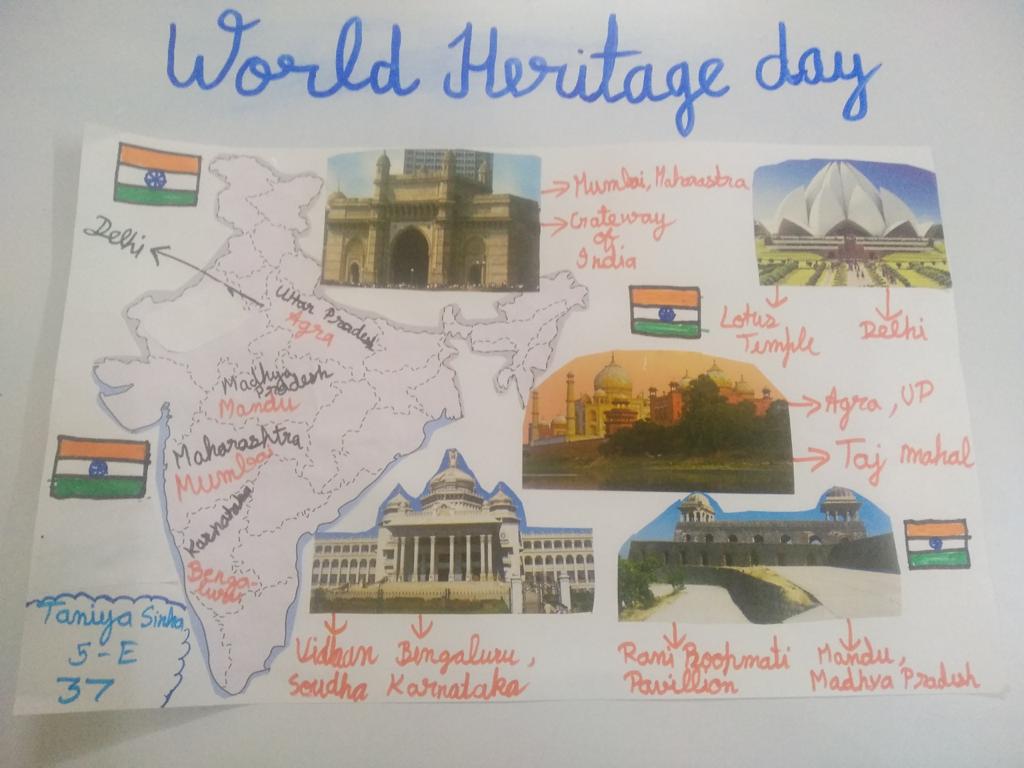 World Heritage day
Delhi
Uttar Pradesh
Agra
Madhya
Pradesh
Mandu
Maharashtra
Mumbai
Karnataka
Benga-
luru
Mumbai, Maharastra
Gateway
of
India
Lotus
Temple
Delhi
Agra, UP
Taj mahal
Vidhan
Soudha
Bengaluru,
Karnataka
Rani Roopmati
Pavillion
Mandu,
Madhya Pradesh
Taniya Sinha
5-E
37